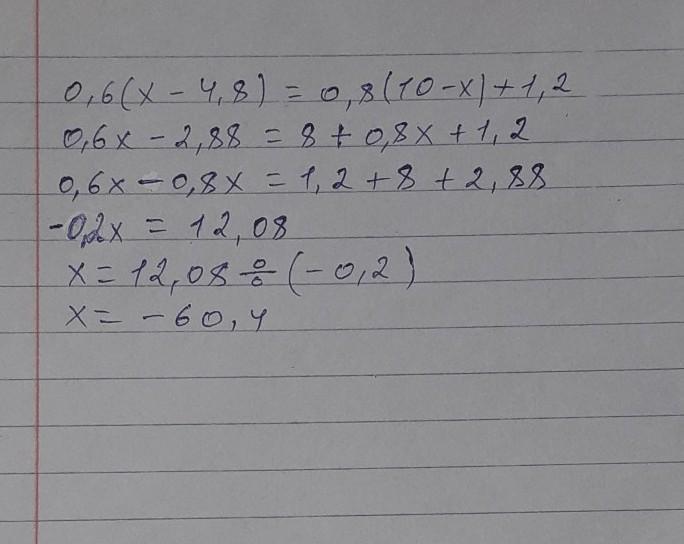 0,6(x - 4,8) = 0,8(10-x)+1,2
0,6x - 2,88 = 8 + 0,8x + 1,2
0,6x - 0,8x = 1,2 + 8 + 2,88
-0,2x = 12,08
x = 12,08 ÷ (-0,2)
x = -60,4